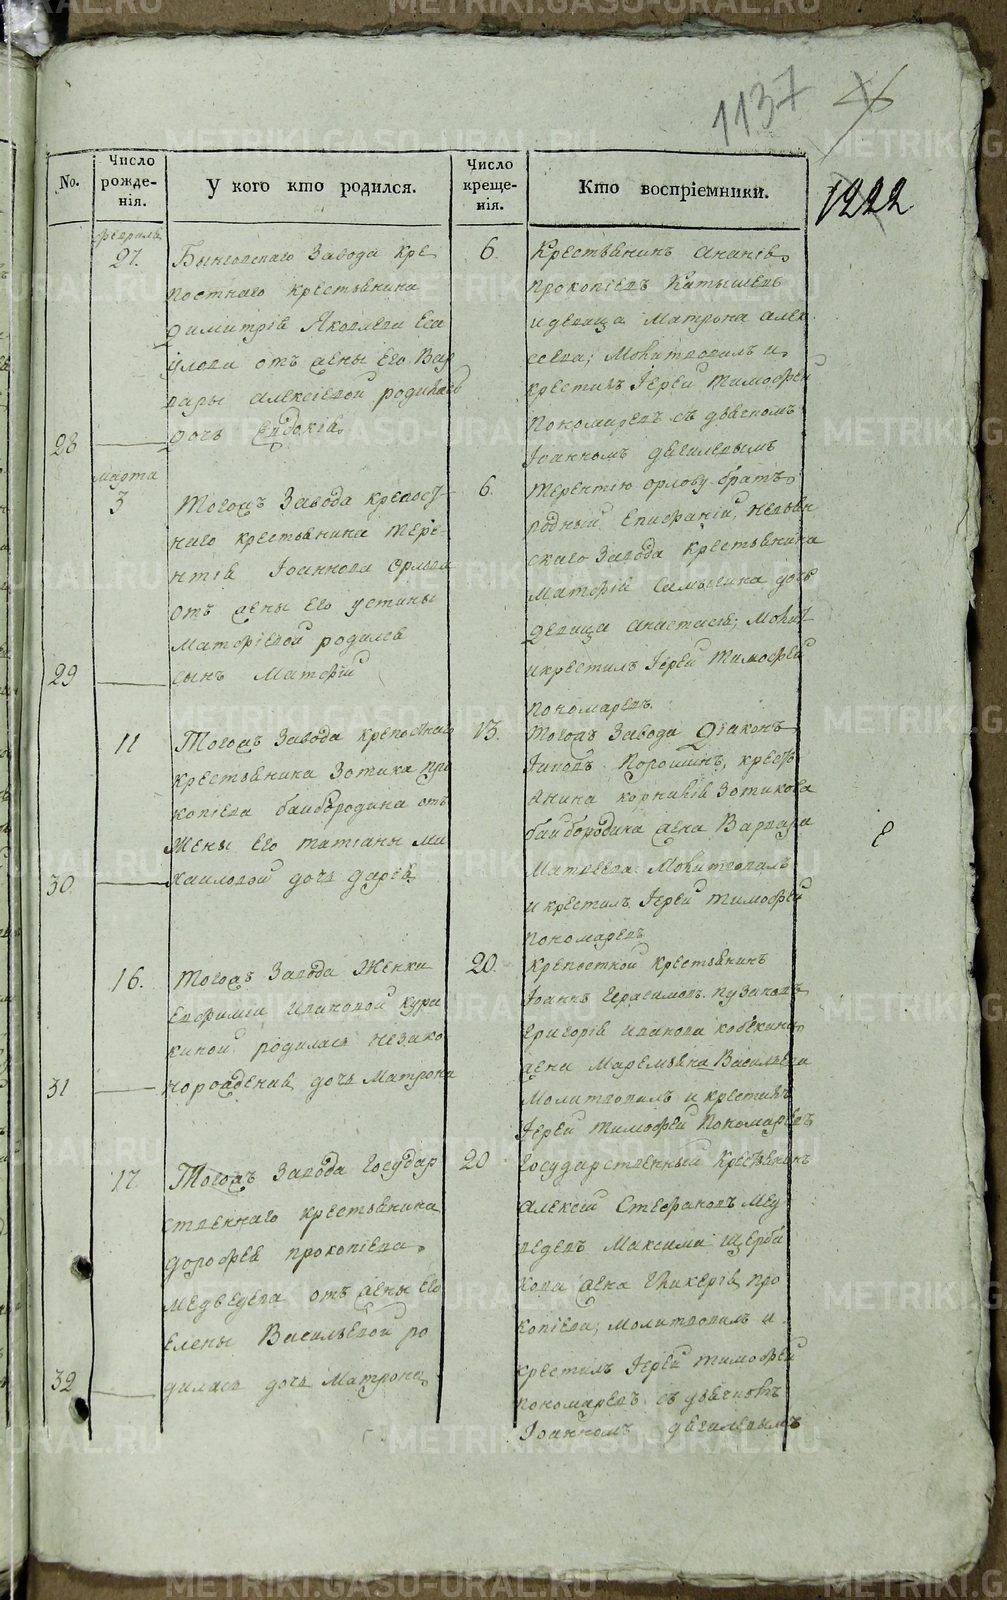 1137
1222
No.
Число рожде-нія.
У кого кто родился.
Число креще-нія.
Кто воспріемники.
февраля
27.
Бынговскаго Завода кре
постнаго крестьянина
Димитрія Яковлева Еса
улова отъ жены Его Вар
вары Алексіевой родилась
дочь Евдокія
28
6.
Крестьянинъ Ананія
Прокопіевъ Катышевъ
и девица Матрона Алек
сеева; Молитвовалъ и
крестилъ Іерей Тимофей
Пономаревъ съ дьяскомъ
Іоанномъ
марта
3
Тогожъ Завода крепост
наго крестьянина Тере-
нтія Іоаннова Орлова
отъ жены Его Устины
Матфіевой родился
сынъ Матфій
29
6.
Терентію Орлову братъ
родный Епифаній, Невьян
скаго Завода крестьянина
Матфія дочь
девица Анастасія; Молит
и крестилъ Іерей Тимофей
Пономаревъ.
11
Тогожъ Завода крепостнаго
крестьянина Зотика Про
копіева Байбородина отъ
Жены Его Татіаны Ми
хаиловой дочь Дарія
30
13.
Тогожъ Завода Діаконъ
Іаковъ Порошинъ, кресть
янина Корнилія Зотикова
Байбородина жена Варвара
Матвеева: Молитвовалъ
и крестилъ Іерей Тимофей
Пономаревъ
16.
Тогожъ Завода Женки
Евфиміи Ивановой Кура
киной родилась незако
норожденная дочь Матрона
31
20.
Крепостной крестьянинъ
Іоаннъ Герасимовъ Пузановъ
Григорія Иванова Кобякина
жена Маремьяна Васильева
Молитвовалъ и крестилъ
Іерей Тимофей Пономаревъ
17
Тогожъ Завода Государ
ственнаго крестьянина
Дорофея Прокопіева
Медведева отъ жены Его
Елены Васильевой ро
дилась дочь Матрона
32
20
Государственный Крестьянинъ
Алексій Стефановъ Мед
ведевъ Максима Щерба
кова жена Гликерія Про
копіева; молитвовалъ и
крестилъ Іерей Тимофей
Пономаревъ съ дьячкомъ
Іоанномъ
METRIKI.GASO-URAL.RU